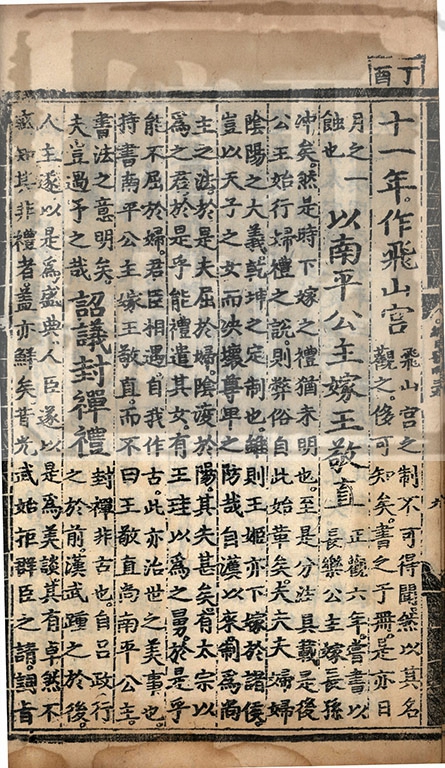 丁酉
十一年。作飛山宮
飛山宮之制不可得聞。然以其名
觀之。侈可知矣。書之于冊。是亦日
月之一
蝕也
以南平公主嫁王敬直
正觀六年。嘗書以
長樂公主嫁長孫
冲矣。然是時下嫁之禮猶未明也。至是分法具載。是後
公主始行婦禮之說。則弊俗自此始革矣。夫夫婦婦
陰陽之大義。乾坤之定制也。雖則王姬亦下嫁於諸侯。
豈以天子之女而決壞尊卑之防哉。自漢以來。制爲尚
主之法。於是夫屈於婦。陰凌於陽。其失甚矣。有太宗以
爲之君。於是乎能禮遣其女。有王珪以爲之舅。於是乎
能不屈於婦。君臣相遇。自我作古。此亦治世之美事也。
持書南平公主嫁王敬直。而不曰王敬直尚南平公主。
書法之意明矣。
夫豈過予之哉
詔議封禪禮
封禪非古也。自呂政行
之於前。漢武踵之於後。
人主遂以是爲盛典。人臣遂以是爲美談。其有卓然不
惑知其非禮者。蓋亦鮮矣。昔光武始拒群臣之請。詞旨